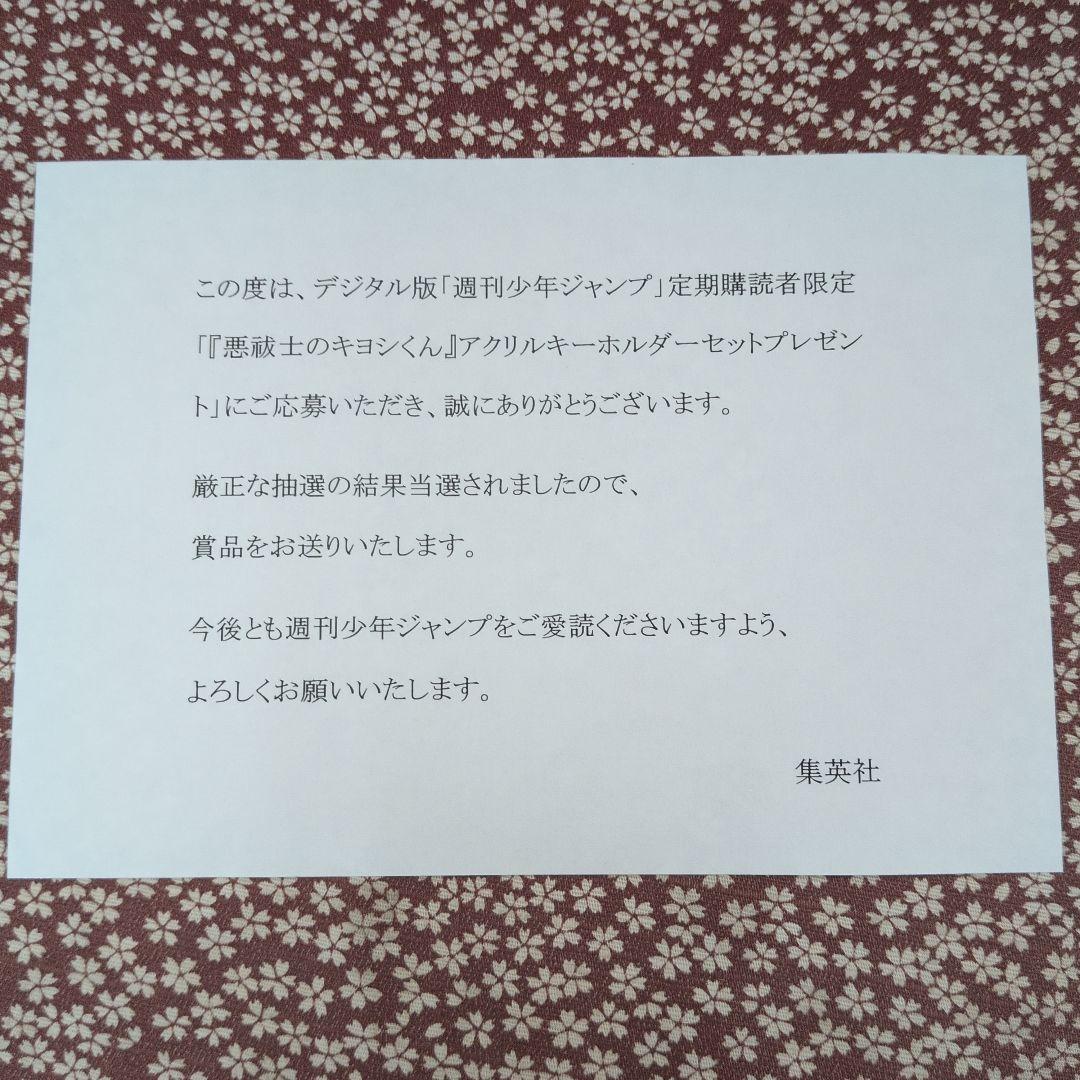 この度は、デジタル版「週刊少年ジャンプ」定期購読者限定
「『悪祓士のキヨシくん』アクリルキーホルダーセットプレゼン
ト」にご応募いただき、誠にありがとうございます。
厳正な抽選の結果当選されましたので、
賞品をお送りいたします。
今後とも週刊少年ジャンプをご愛読くださいますよう、
よろしくお願いいたします。
集英社